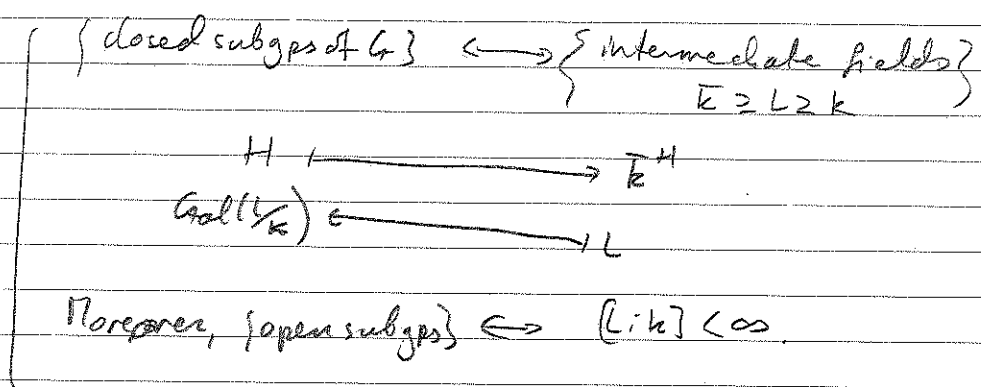 {closed subgps of G} ⟷ {intermediate fields}
k̄ ⊇ L ⊇ k
H ⟼ k̄^H
Gal(L/k) ⟻ L
Moreover, {open subgps} ⟷ [L:k] < ∞.